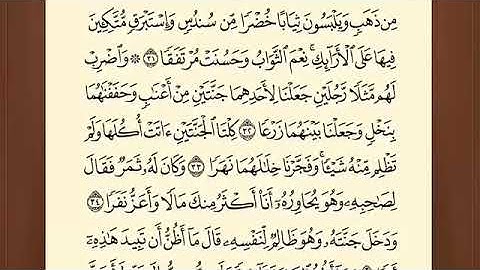 مِن ذَهَبٍ وَيَلْبَسُونَ ثِيَابًا خُضْرًا مِّن سُندُسٍ وَإِسْتَبْرَقٍ مُّتَّكِـِٔينَ
فِيهَا عَلَى ٱلْأَرَآئِكِ ۚ نِعْمَ ٱلثَّوَابُ وَحَسُنَتْ مُرْتَفَقًا ٣١ ۞ وَٱضْرِبْ
لَهُم مَّثَلًا رَّجُلَيْنِ جَعَلْنَا لِأَحَدِهِمَا جَنَّتَيْنِ مِنْ أَعْنَٰبٍ وَحَفَفْنَٰهُمَا
بِنَخْلٍ وَجَعَلْنَا بَيْنَهُمَا زَرْعًا ٣٢ كِلْتَا ٱلْجَنَّتَيْنِ ءَاتَتْ أُكُلَهَا وَلَمْ
تَظْلِم مِّنْهُ شَيْـًٔا ۚ وَفَجَّرْنَا خِلَٰلَهُمَا نَهَرًا ٣٣ وَكَانَ لَهُۥ ثَمَرٌ فَقَالَ
لِصَٰحِبِهِۦ وَهُوَ يُحَاوِرُهُۥٓ أَنَا۠ أَكْثَرُ مِنكَ مَالًا وَأَعَزُّ نَفَرًا ٣٤
وَدَخَلَ جَنَّتَهُۥ وَهُوَ ظَالِمٌ لِّنَفْسِهِۦ قَالَ مَآ أَظُنُّ أَن تَبِيدَ هَٰذِهِۦٓ